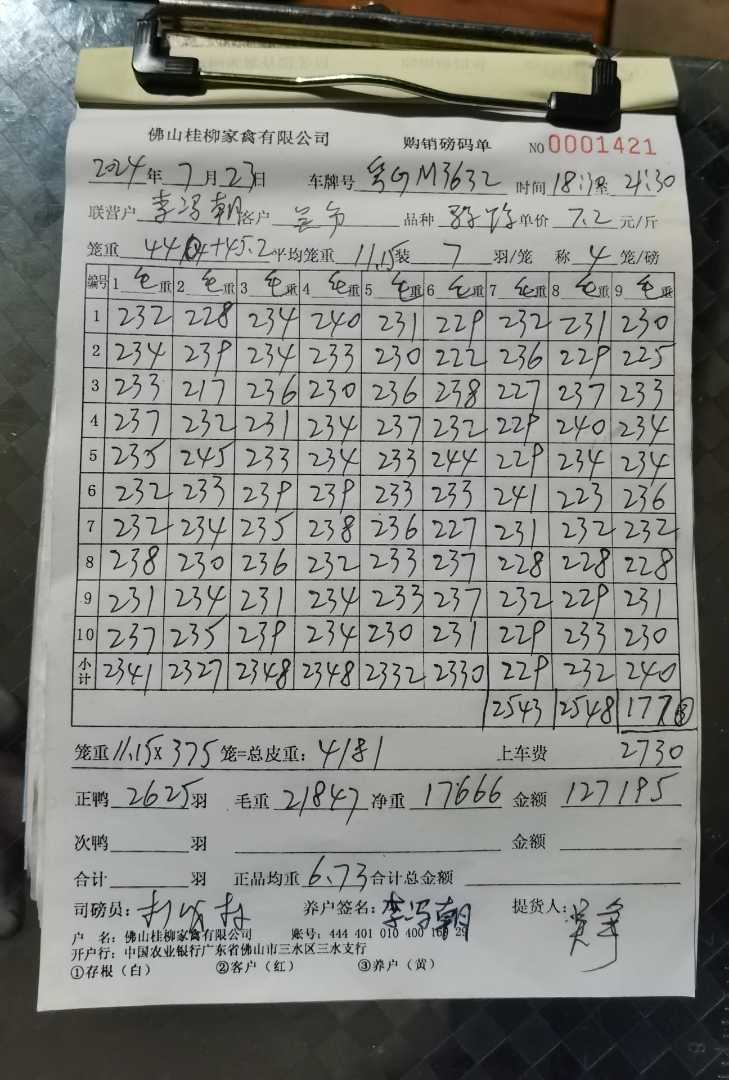 佛山桂柳家禽有限公司 购销磅码单 NO 0001421
2024年7月23日 车牌号 粤GM3632 时间 18: 至 21:30
联营户 李冯朝 客户 品种 单价 7.2 元/斤
笼重 44 +45.2 平均笼重 11.15 装 7 羽/笼 称 4 笼/磅
编号 1 毛重 2 毛重 3 毛重 4 毛重 5 毛重 6 毛重 7 毛重 8 毛重 9 毛重
1 232 228 234 240 231 229 232 231 230
2 234 239 234 233 230 222 236 229 225
3 233 217 236 230 236 238 227 237 233
4 237 232 231 234 237 232 229 240 234
5 235 245 233 234 233 244 229 234 234
6 232 233 239 239 233 233 241 223 236
7 232 234 235 238 236 227 231 232 232
8 238 230 236 232 233 237 228 228 228
9 231 234 231 234 233 237 232 229 231
10 237 235 239 234 230 231 229 233 230
小计 2341 2327 2348 2348 2332 2330 229 232 240
2543 2548 177 ③
笼重 11.15 x 375 笼=总皮重: 4181 上车费 2730
正鸭 2625 羽 毛重 21847 净重 17666 金额 127195
次鸭 羽 金额
合计 羽 正品均重 6.73 合计总金额
司磅员: 养户签名: 李冯朝 提货人:
户 名: 佛山桂柳家禽有限公司 账号: 444 401 010 400 160 29
开户行: 中国农业银行广东省佛山市三水区三水支行
①存根(白) ②客户(红) ③养户(黄)